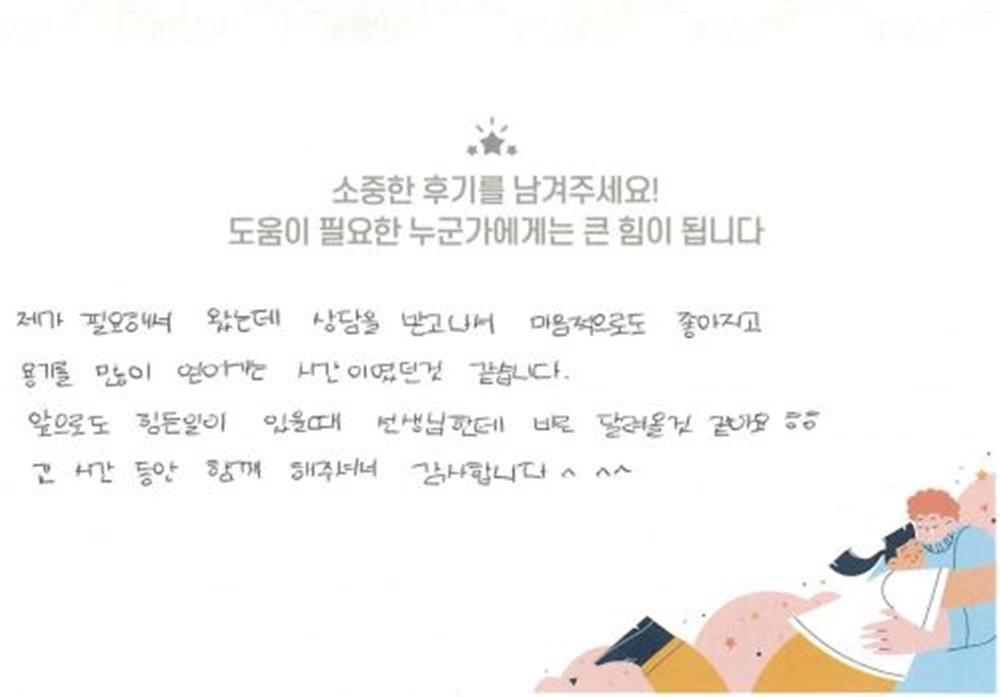 소중한 후기를 남겨주세요!
도움이 필요한 누군가에게는 큰 힘이 됩니다
제가 필요해서 왔는데 상담을 받고나서 마음적으로도 좋아지고
용기를 많이 얻어가는 시간이였던것 같습니다.
앞으로도 힘든일이 있을때 선생님한테 바로 달려올것 같아요 ㅎㅎ
긴 시간 동안 함께 해주셔서 감사합니다 ^ ^^